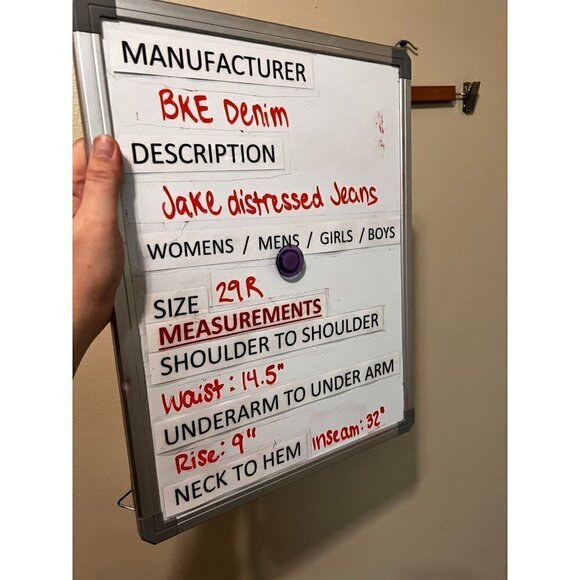 MANUFACTURER
BKE Denim
DESCRIPTION
Jake distressed Jeans
WOMENS / MENS / GIRLS / BOYS
SIZE 29R
MEASUREMENTS
SHOULDER TO SHOULDER
Waist: 14.5"
UNDERARM TO UNDER ARM
Rise: 9" Inseam: 32"
NECK TO HEM